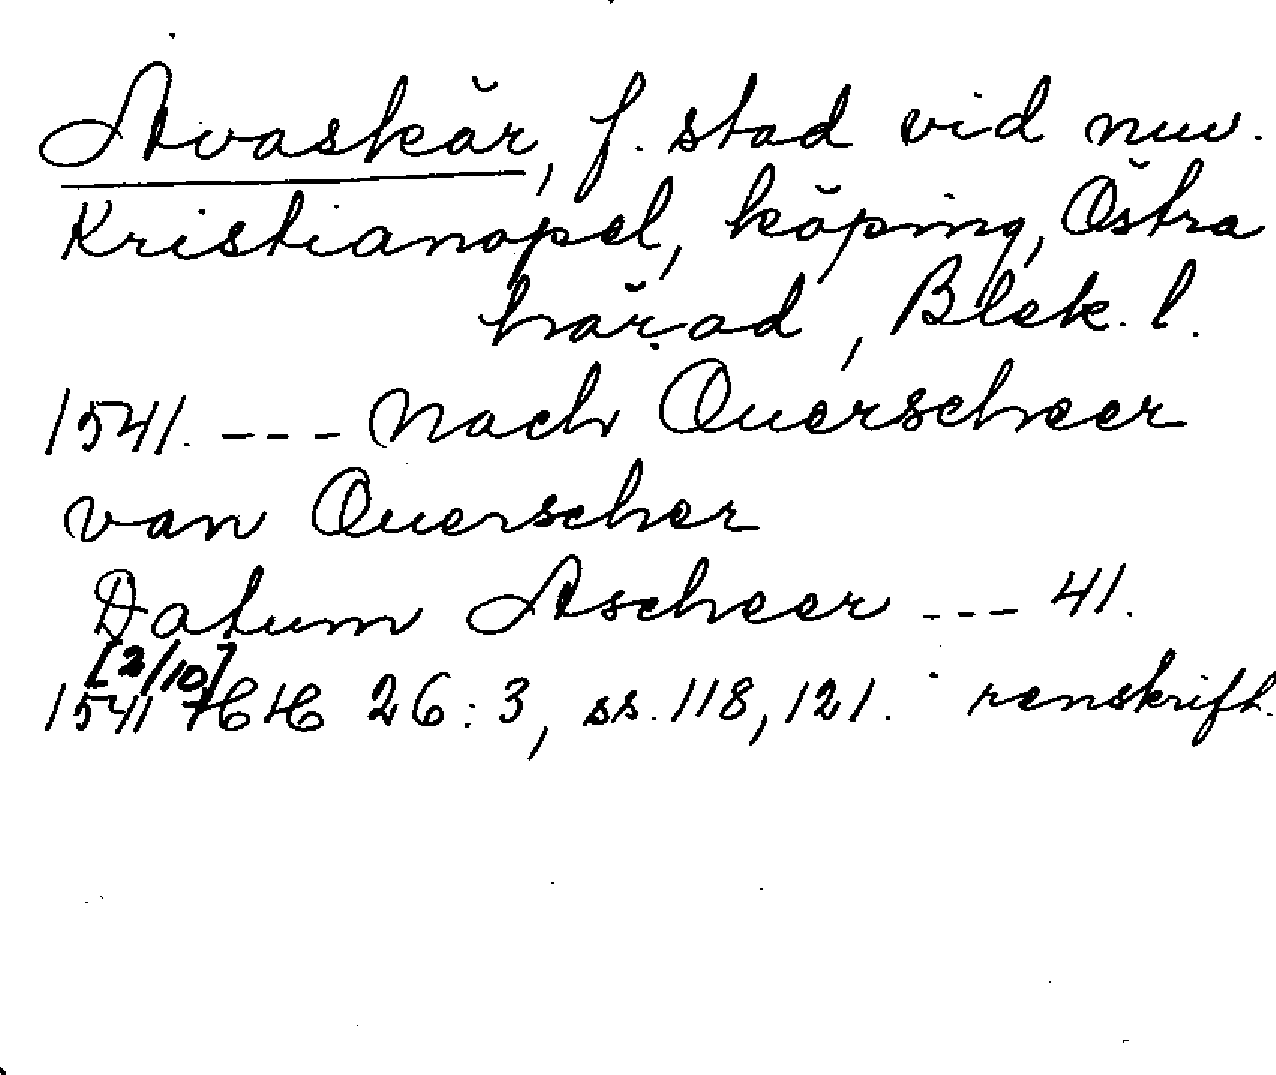 Avaskär, f. stad vid nuv.
Kristianopel, köping, Östra
härad, Blek. l.
1541. --- Nach Querscheer
van Querscher
Datum Ascheer --- 41.
[2/10]
1541 HH 26:3, ss. 118, 121. renskrift.